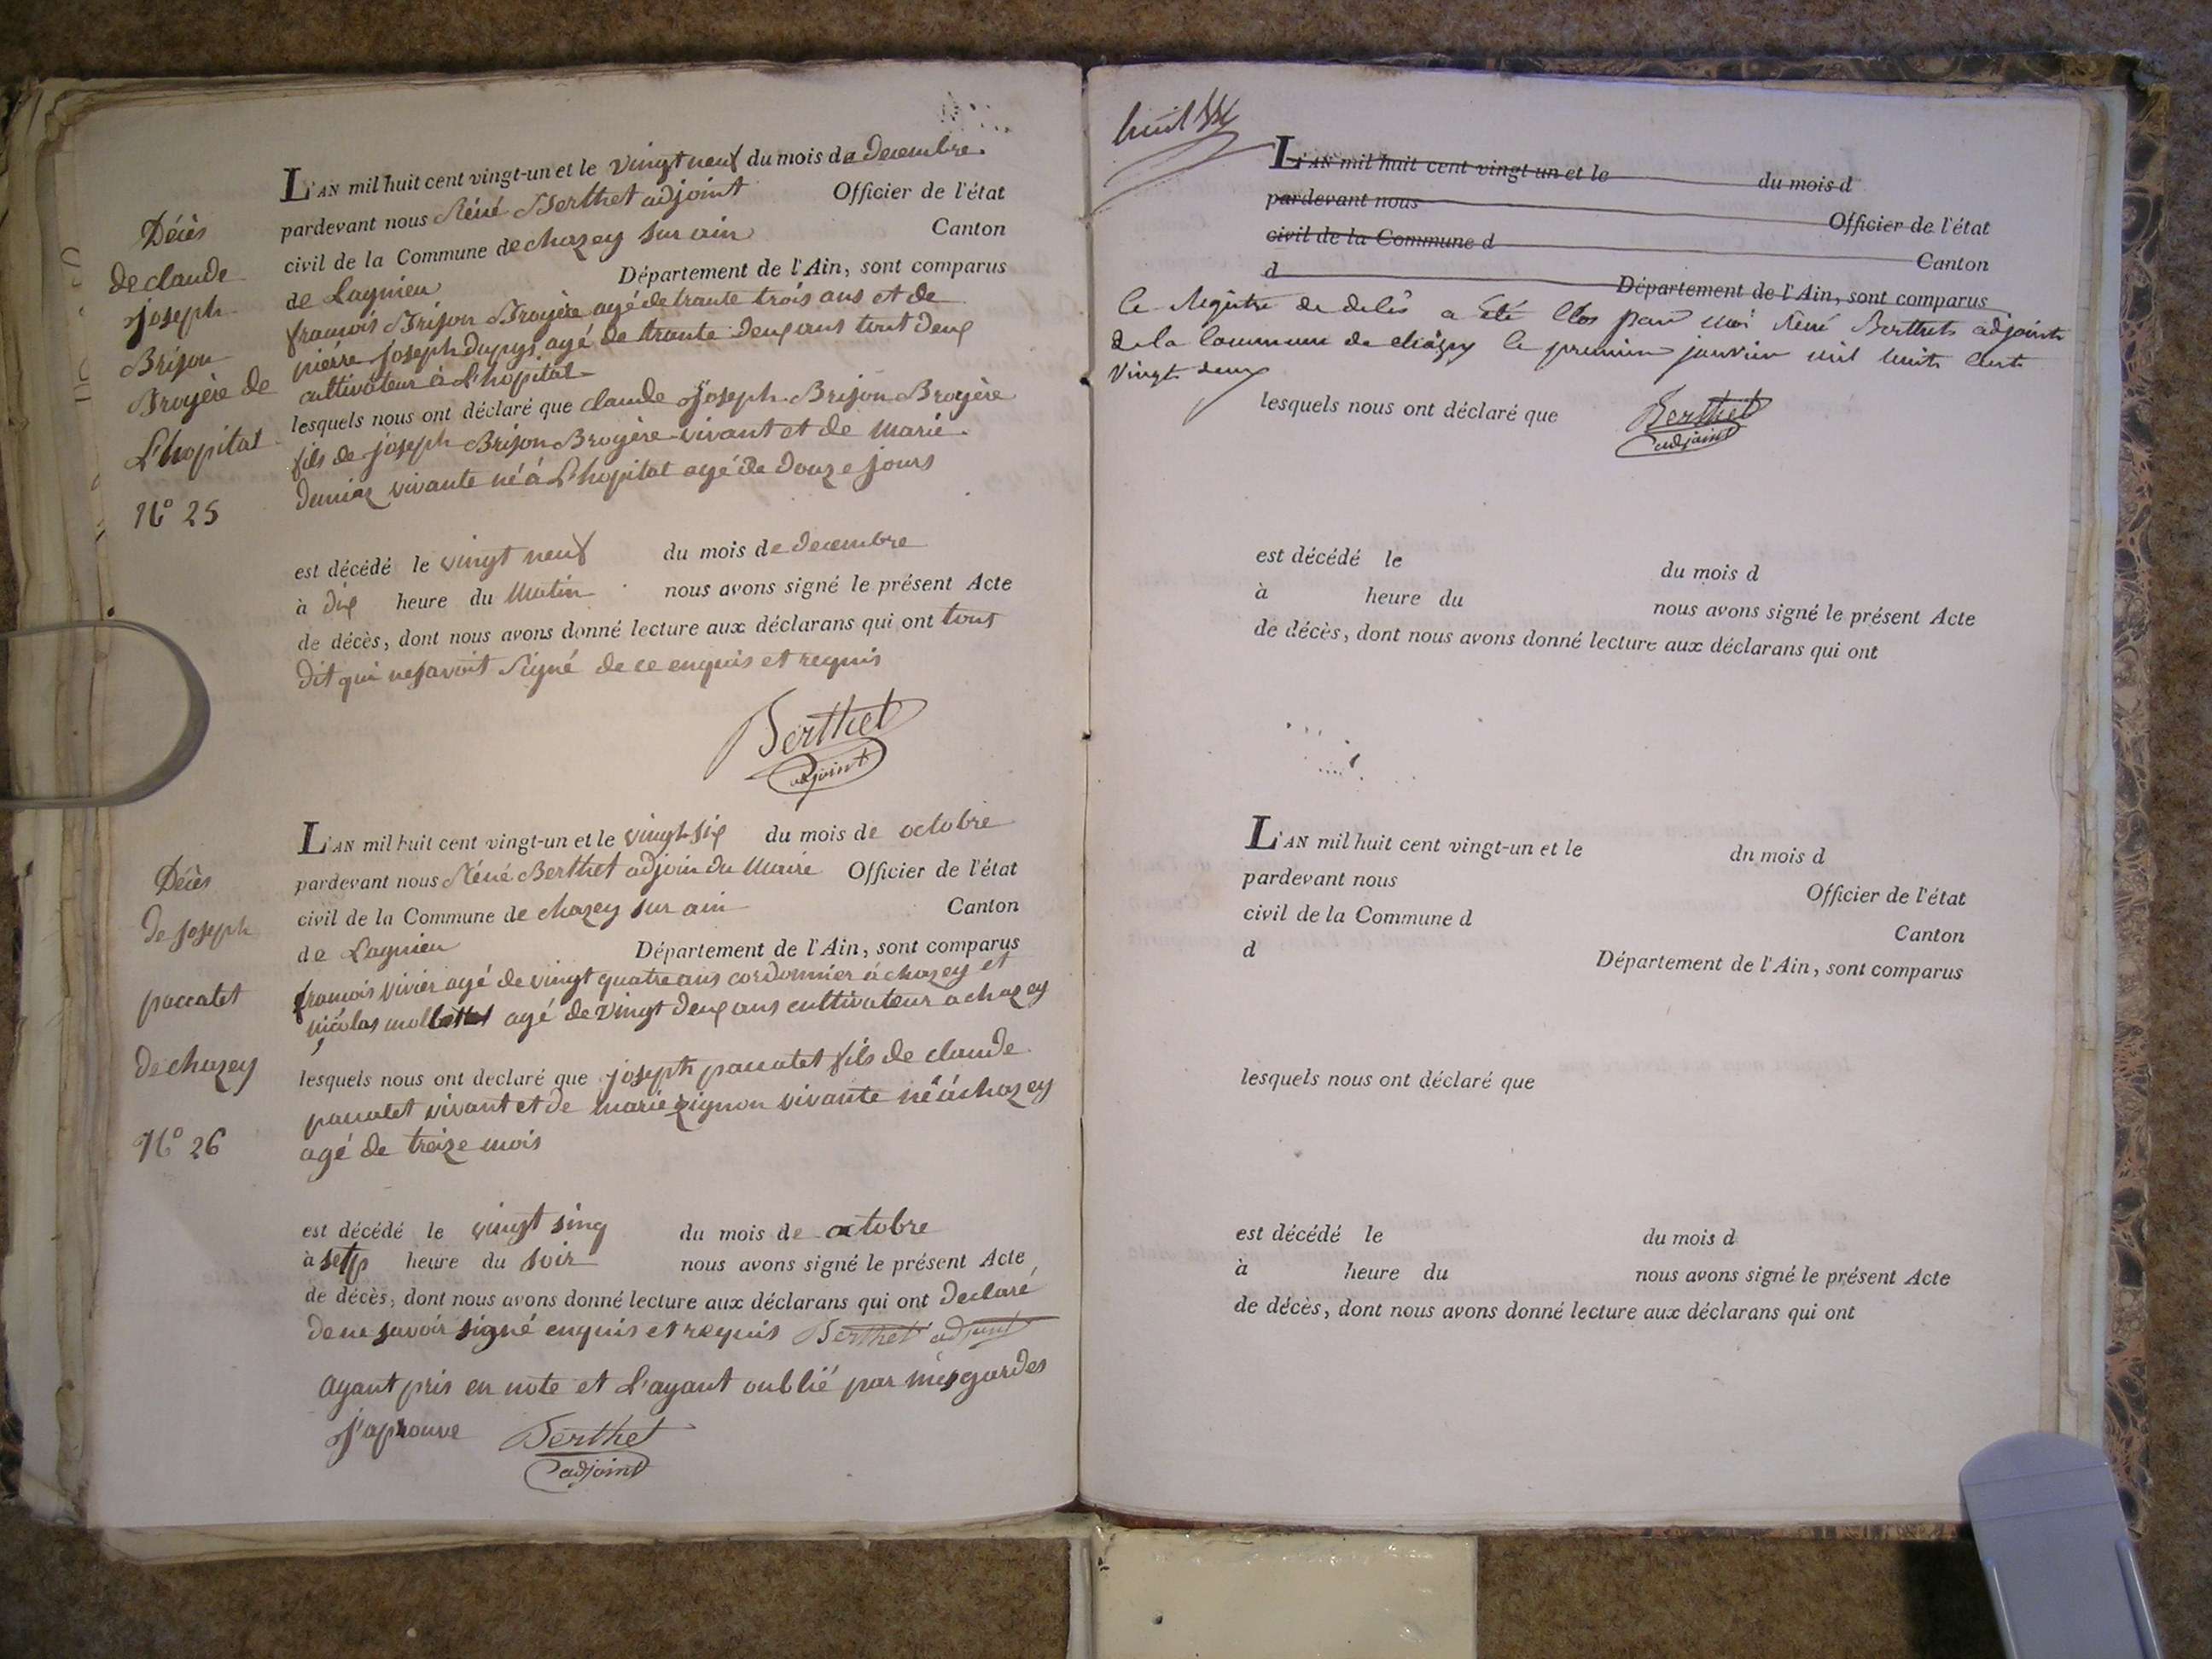 Décès
de claude
joseph
Brison
Broyère de
L'hopital
N° 25
L'AN mil huit cent vingt-un et le vingt neuf du mois de decembre
pardevant nous Réné Berthet adjoint Officier de l'état
civil de la Commune de chazey sur ain Canton
de Lagnieu Département de l'Ain, sont comparus
francois Brison Broyère agé de trante trois ans et de
pierre joseph dupys agé de trante deux ans tout deux
cultivateur à L'hopital
lesquels nous ont déclaré que claude joseph Brison Broyère
fils de joseph Brison Broyère vivant et de marie
vivante né à L'hopital agé de douze jours
est décédé le vingt neuf du mois de decembre
à dix heure du matin nous avons signé le présent Acte
de décès, dont nous avons donné lecture aux déclarans qui ont tous
dit qui ne savoit signé de ce enquis et requis
Berthet
adjoint
Décès
de joseph
paccatet
de chazey
N° 26
L'AN mil huit cent vingt-un et le vingt six du mois de octobre
pardevant nous Réné Berthet adjoin du maire Officier de l'état
civil de la Commune de chazey sur ain Canton
de Lagnieu Département de l'Ain, sont comparus
francois vivier agé de vingt quatre ans cordonnier à chazey et
nicolas agé de vingt deux ans cultivateur a chazey
lesquels nous ont declaré que joseph paccatet fils de claude
paccatet vivant et de marie vivante né à chazey
agé de treize mois
est décédé le vingt sinq du mois de octobre
à setp heure du soir nous avons signé le présent Acte
de décès, dont nous avons donné lecture aux déclarans qui ont declaré
de ne savoir signé enquis et requis Berthet adjoint
ayant pris en note et L'ayant oublié par mesgardes
J'aprouve Berthet
adjoint
L'AN mil huit cent vingt-un et le du mois d
pardevant nous Officier de l'état
civil de la Commune d Canton
d Département de l'Ain, sont comparus
le Régistre de décès a été clos par moi Réné Berthet adjoint
de la Commune de chazey le premier janvier mil huit cent
vingt deux
lesquels nous ont déclaré que Berthet
adjoint
est décédé le du mois d
à heure du nous avons signé le présent Acte
de décès, dont nous avons donné lecture aux déclarans qui ont
L'AN mil huit cent vingt-un et le dn mois d
pardevant nous Officier de l'état
civil de la Commune d Canton
d Département de l'Ain, sont comparus
lesquels nous ont déclaré que
est décédé le du mois d
à heure du nous avons signé le présent Acte
de décès, dont nous avons donné lecture aux déclarans qui ont